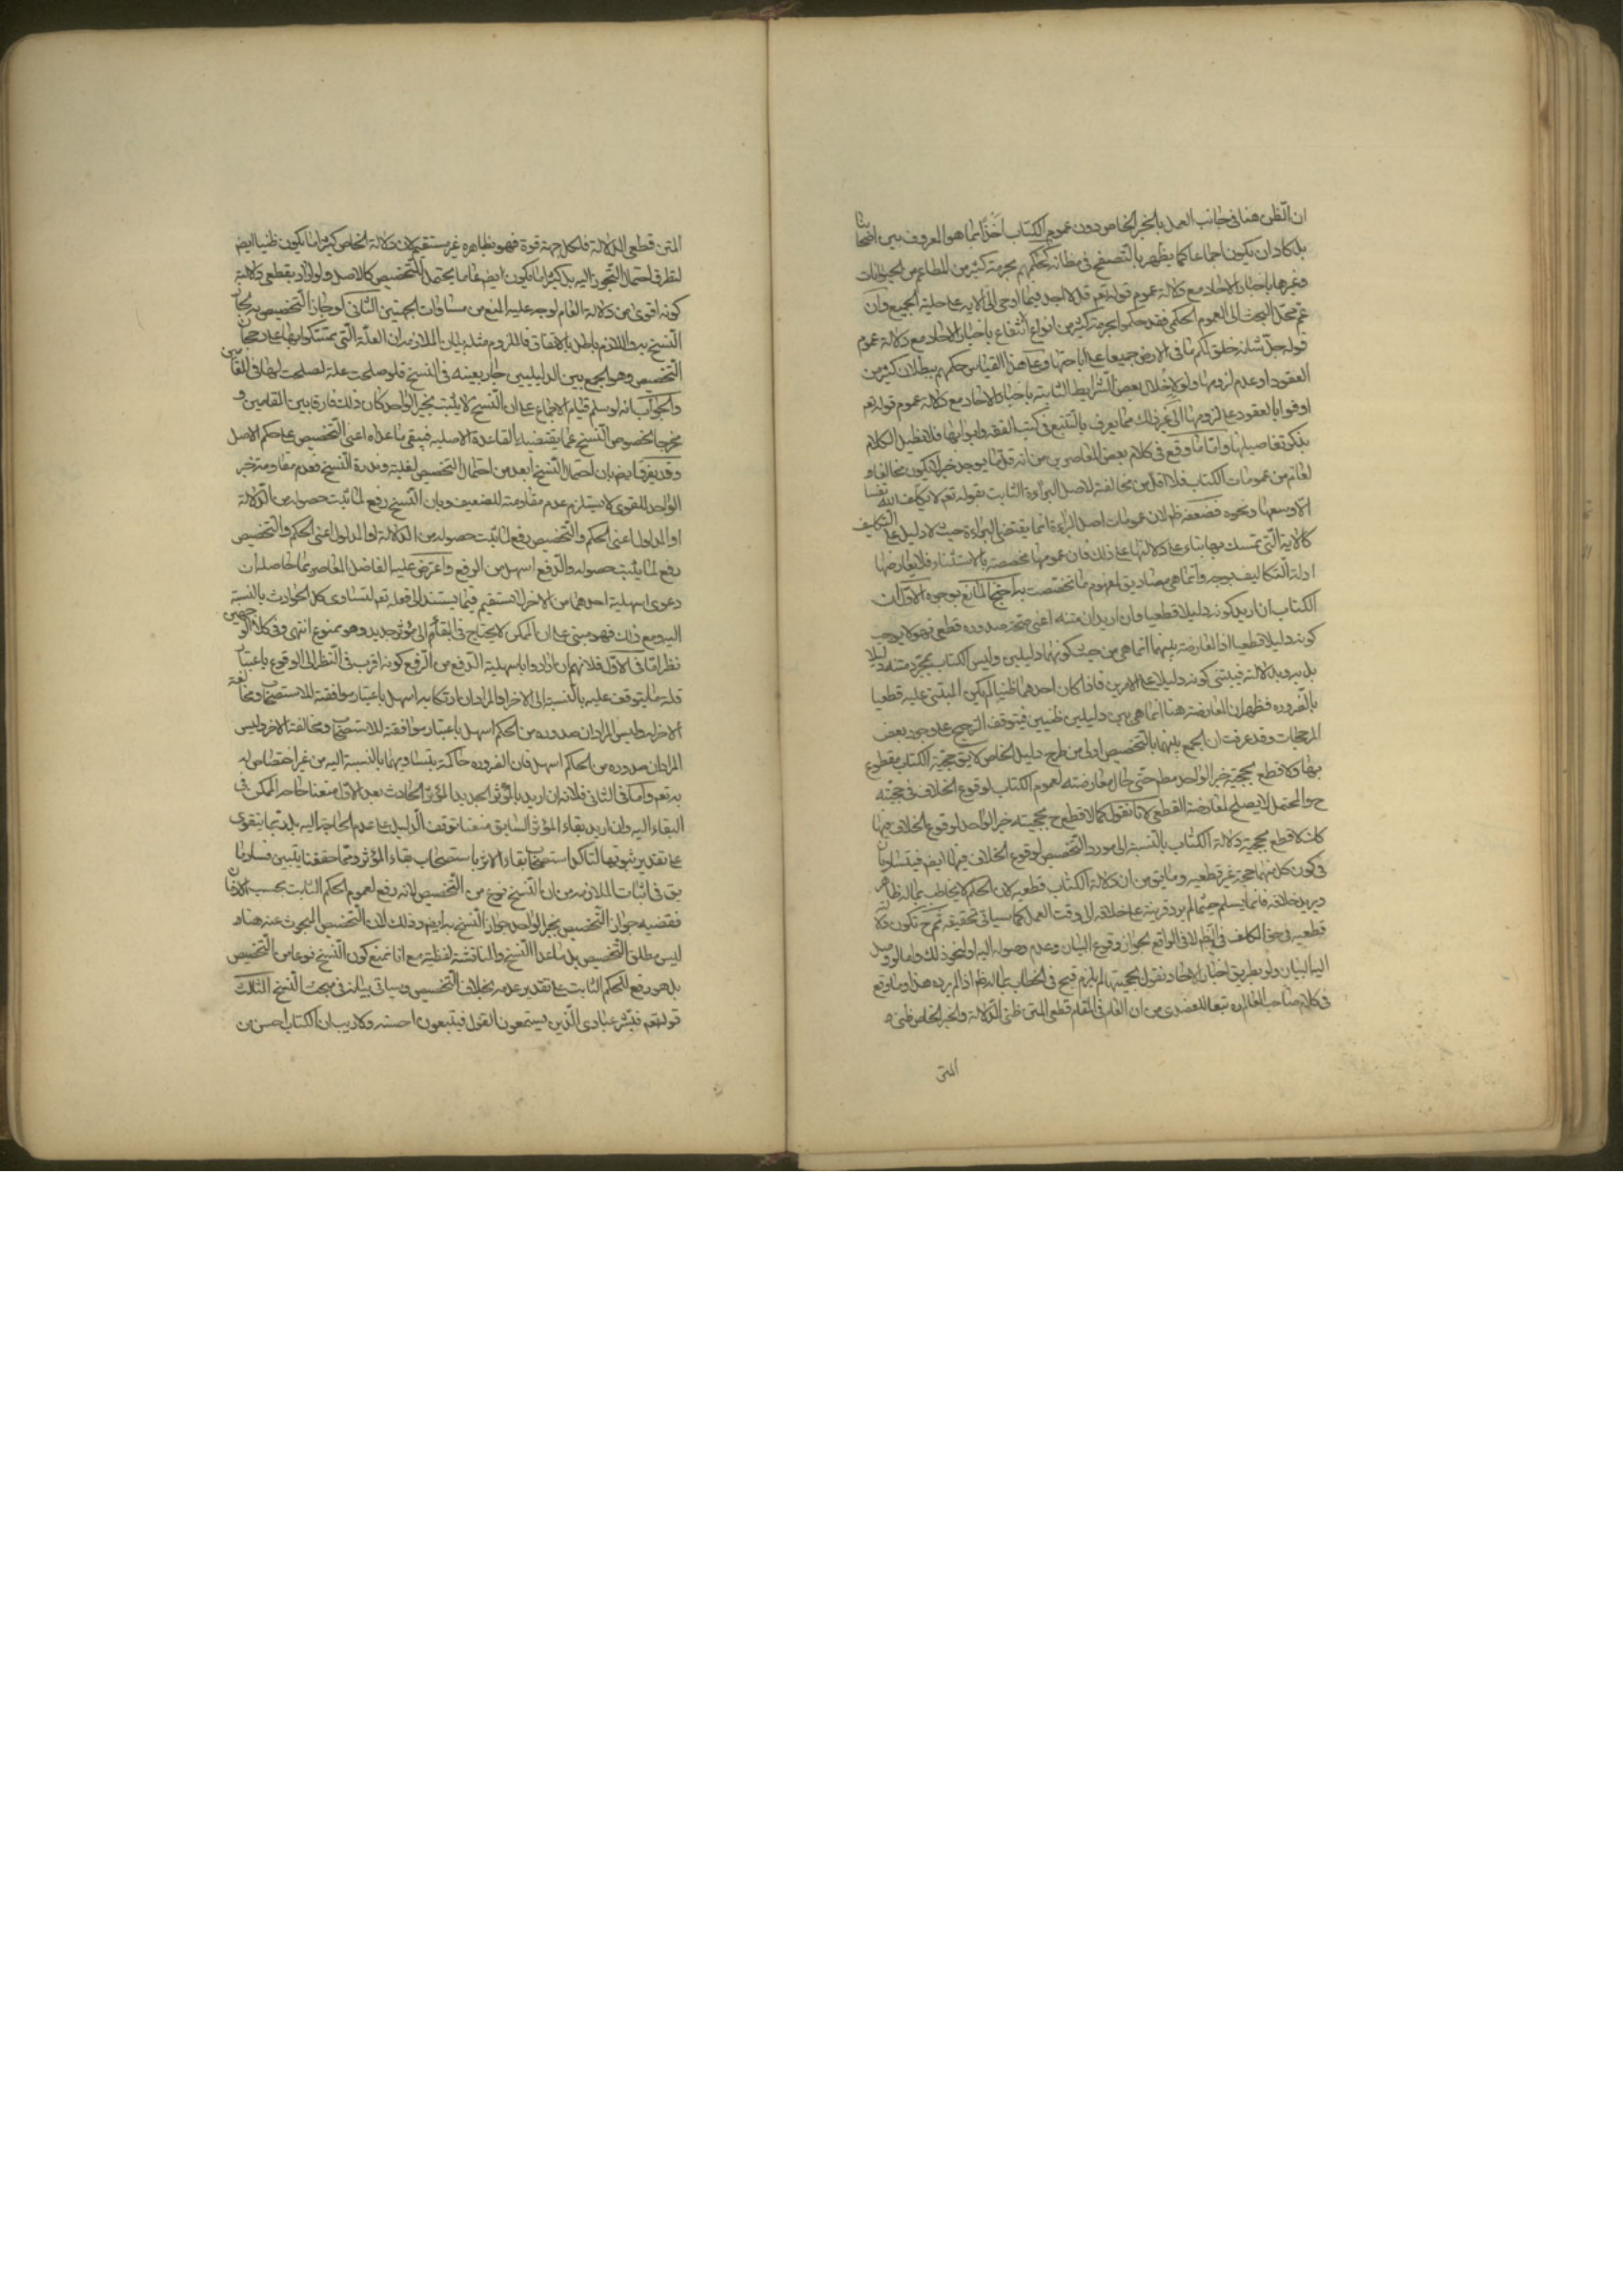 ان الظن هنا في جانب العمل بالخبر الخاص دون عموم الكتاب اخذا بما هو المعروف بين اصحابنا
بل كاد ان يكون اجماعا كما يظهر بالتصفح في مظانه كحكمهم بحرمة كثير من المطاعم من الحيوانات
وغيرها باخبار الاحاد مع دلالة عموم قوله تعم قل لا اجد فيما اوحى الى الاية على حلية الجميع وان
عم محل البحث الى العموم الحكمي فقد حكموا بحرمة كثير من انواع انتفاع باخبار الاحاد مع دلالة عموم
قوله جل شانه خلق لكم ما في الارض جميعا على اباحتها وعلى هذا القياس حكمهم ببطلان كثير من
العقود او عدم لزومها ولو لاخلال بعض الشرايط الثابتة باخبار الاحاد مع دلالة عموم قوله تعم
اوفوا بالعقود على لزومها الى غير ذلك مما يعرف بالتتبع في كتب الفقه وابوابها فلا نطيل الكلام
بذكر تفاصيلها واما ما وقع في كلام بعض المعاصرين من انه قل ما يوجد خبر لا يكون مخالفا و
لعام من عمومات الكتاب فلا اقل من مخالفته لاصل البراءة الثابت بقوله تعم لا يكلف الله نفسا
الا وسعها ونحوه فضعفه ظ لان عمومات اصل البراءة انما يقتضى البراءة حيث لا دليل على التكليف
كالاية التي تمسك بها بناء على دلالتها على ذلك فان عمومها مخصصة بالاستثناء فلا يعارضها
ادلة التكاليف بوجه وانما هي مصاديق لمفهوم ما تخصصت به احتج المانع بوجوه الاول ان
الكتاب ان اريد كونه دليلا قطعيا وان اريد ان متنه اعنى صدوره قطعى فهو لا يوجب
كونه دليلا قطعيا اذ المعارضة بينهما انما هي من حيث كونهما دليلين وليس الكتاب بمجرد متنه دليلا
بل به وبدلالته فيبتنى كونه دليلا على الامرين فاذا كان احدهما ظنيا لم يكن المبتنى عليه قطعيا
بالضرورة فظهر ان المعارضة هنا انما هي بين دليلين ظنيين فيتوقف الترجيح على وجود بعض
المرجحات وقد عرفت ان الجمع بينهما بالتخصيص اولى من طرح دليل الخاص لا يق حجية الكتاب مقطوع
بها ولا قطع بحجية خبر الواحد مطم حتى حال معارضته لعموم الكتاب لوقوع الخلاف في حجيته
ح والمحتمل لا يصلح لمعارضة القطعي لانا نقول كما لا قطع ح بحجيته خبر الواحد لوقوع الخلاف فيها
كك لا قطع بحجية دلالة الكتاب بالنسبة الى مورد التخصيص لوقوع الخلاف فيها ايض فيتساويان
في كون كل منهما حجة غير قطعيه وما يق من ان دلالة الكتاب قطعيه لان الحكيم لا يخاطب بما له ظاهر
ويريد خلافه فانما يسلم حيثما لم يرد قرينة على خلافه الى وقت العمل كما سياتى تحقيقه ثم ح تكون دلالته
قطعيه في حق المكلف في الظم لا في الواقع لجواز وقوع البيان وعدم وصوله اليه او لنحو ذلك واما لو وصل
اليه البيان ولو بطريق اخبار الاحاد نقول بحجيتها لم يلزم قبح في الخطاب بما له ظم اذا لم يرده هذا وما وقع
في كلام صاحب المعالم ره تبعا للعضدى من ان العام في المقام قطعى المتن ظنى الدلالة والخبر الخاص ظنى
المتن
المتن قطعى الدلالة فلكل جهة قوة فهو بظاهره غير مستقيم لان دلالة الخاص كثيرا ما يكون ظنيا ايض
لتطرق احتمال التجوز اليه بل كثيرا ما يكون ايض عاما يحتمل التخصيص كالاصل ولو اراد بقطعى دلالته
كونه اقوى من دلالة العام لوجه عليه المنع من مساوات الجهتين الثانى لو جاز التخصيص به لجاز
النسخ به واللازم باطل بالاتفاق فالملزوم مثله بيان الملازمه ان العلة التي تمسكوا بها على رجحان
التخصيص وهو الجمع بين الدليلين جار بعينه في النسخ فلو صلحت علة لصلحت لها في المقامين
والجواب انه لو سلم قيام الاجماع على ان النسخ لا يثبت بخبر الواحد كان ذلك فارقا بين المقامين و
مخرجا لخصوص النسخ عما يقتضيه القاعدة الاصليه فيبقى ما عداه اعنى التخصيص على حكم الاصل
وقد يفرق ايض بان احتمال النسخ ابعد من احتمال التخصيص لغلبته وندرة النسخ فعدم مقاومة خبر
الواحد للقوى لا يستلزم عدم مقاومته للضعيف وبان النسخ رفع لما ثبت حصوله من الدلالة
او المدلول اعنى الحكم والتخصيص رفع لما ثبت حصوله من الدلالة او المدلول اعنى الحكم والتخصيص
دفع لما يثبت حصوله والدفع اسهل من الرفع واعترض عليه الفاضل المعاصر بما حاصله ان
دعوى اسهلية احدهما من الاخر لا تستقيم فيما يستند الى فعله تعم لتساوى كل الحوادث بالنسبة
اليه ومع ذلك فهو مبنى على ان الممكن لا يحتاج في البقاء الى مؤثر جديد وهو ممنوع انتهى وفي كلا الوجهين
نظر اما في الاول فلانهم ان ارادوا باسهلية الدفع من الرفع كونه اقرب في النظر الى الوقوع باعتبار
قلة ما يتوقف عليه بالنسبة الى الاخر او المراد ان ارتكابه اسهل باعتبار موافقته للاستصحاب ومخالفة
الاخر له وليس المراد ان صدوره من الحكم اسهل باعتبار موافقته للاستصحاب ومخالفة الاخر وليس
المراد ان صدوره من الحاكم اسهل فان الضرورة حاكمة بتساويهما بالنسبة اليه من غير اختصاص له
به تعم واما في الثانى فلانه ان اريد بالمؤثر الجديد المؤثر الحادث بعد الاول منعنا حاجة الممكن في
البقاء اليه وان اريد بقاء المؤثر السابق منعنا توقف الدليل على عدم الحاجة اليه بل ربما يتقوى
على تقدير ثبوتها لتاكد استصحاب بقاء الاثر باستصحاب بقاء المؤثر ومما حققنا يتبين فساد ما
يق في اثبات الملازمه من ان النسخ نوع من التخصيص لانه رفع لعموم الحكم الثابت بحسب الازمان
فقضيه جواز التخصيص بخبر الواحد جواز النسخ به ايض وذلك لان التخصيص المبحوث عنه هنا
ليس مطلق التخصيص بل ما عدا النسخ والمناقشة لفظية مع انا نمنع كون النسخ نوعا من التخصيص
بل هو رفع للحكم الثابت على تقدير عدمه بخلاف التخصيص وسياتى بيانه في مبحث النسخ الثالث
قوله تعم فبشر عبادى الذين يستمعون القول فيتبعون احسنه ولا ريب ان الكتاب احسن من